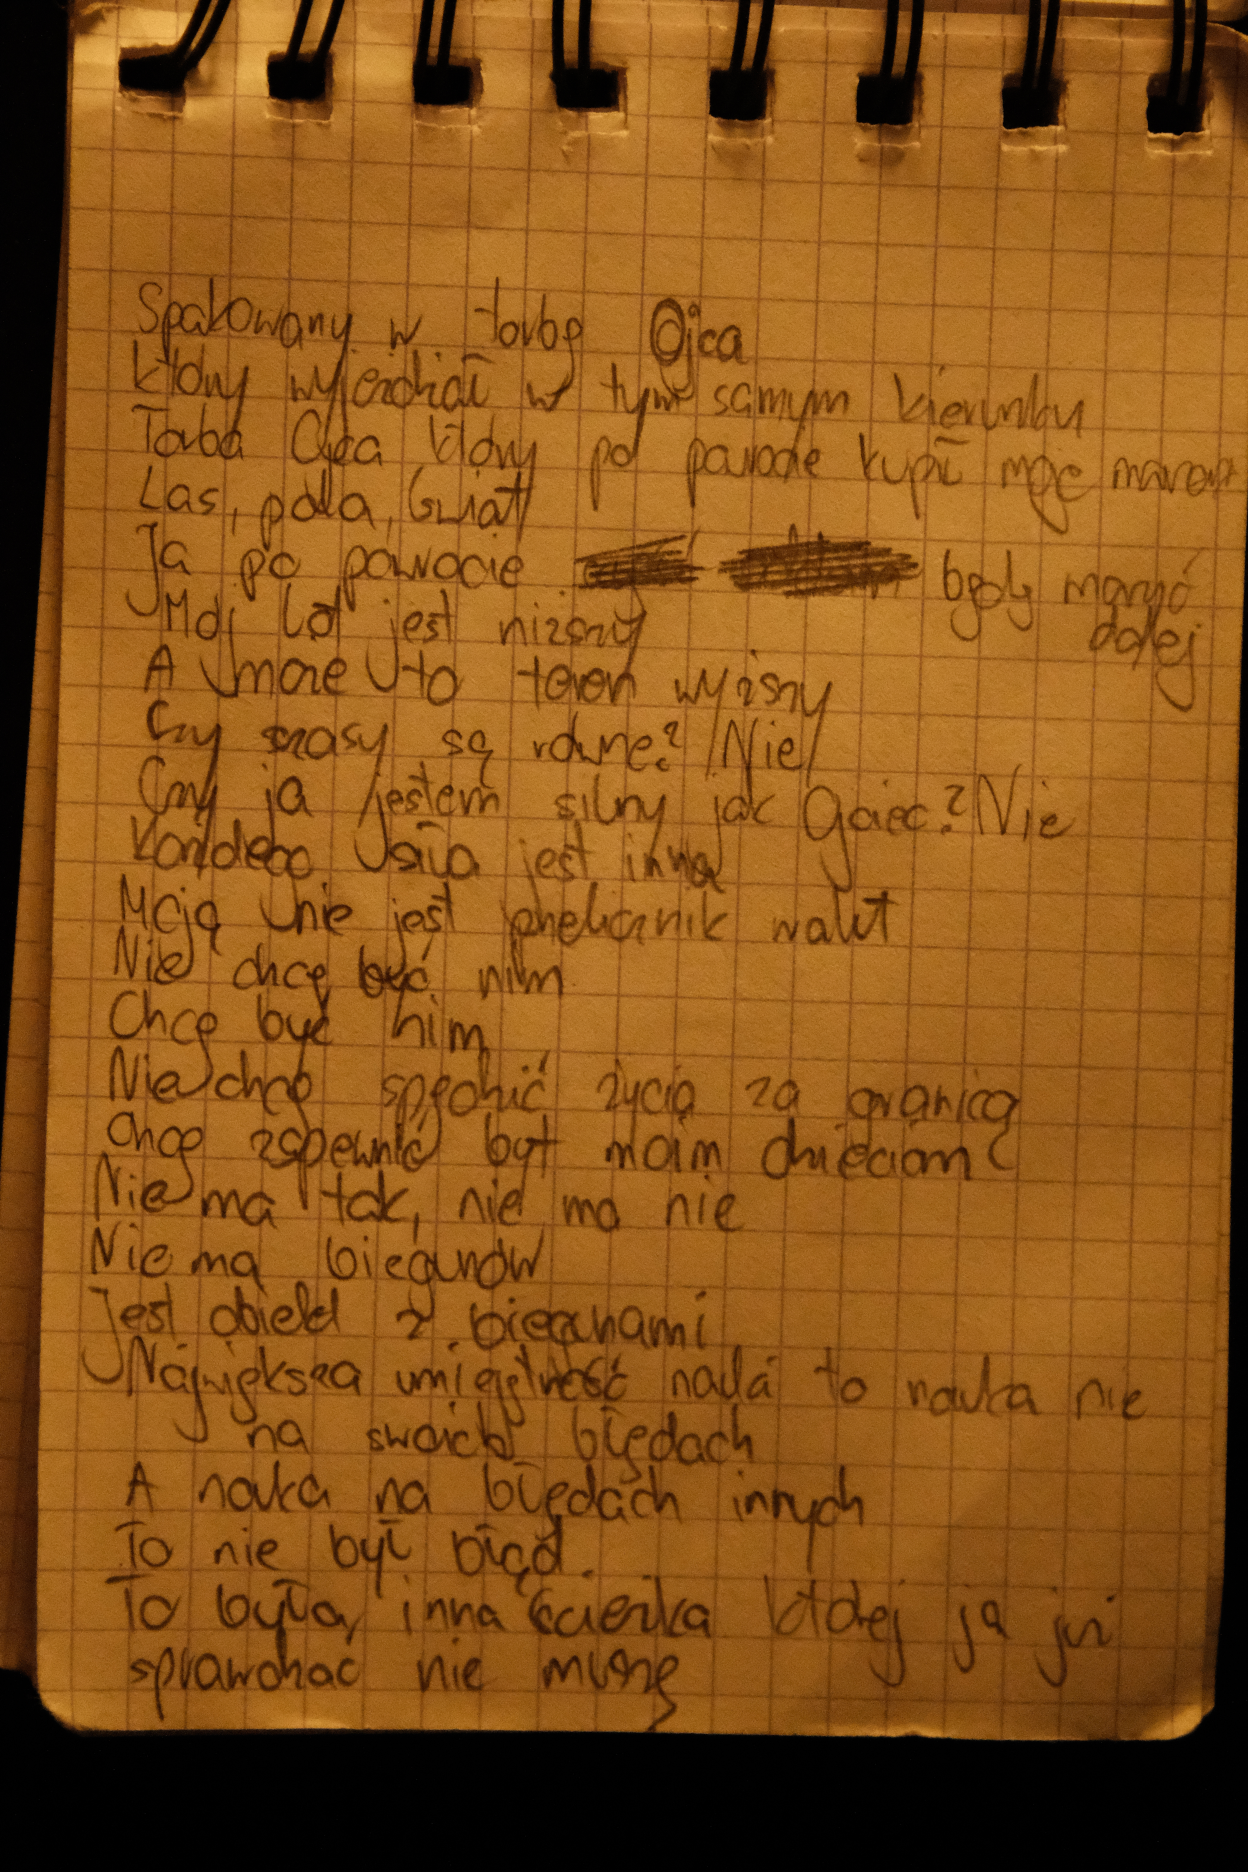 Spakowany w torbę Ojca
który wyjeżdżał w tym samym kierunku
Torba Ojca który po powrocie kupił moje marzenia
Las, pola, świat
Ja po powrocie będę marzyć
dalej
Mój lot jest niższy
A może to teren wyższy
Czy czasy są równe? Nie
Czy ja jestem silny jak Ojciec? Nie
Każdego siła jest inna
Moją nie jest przelicznik walut
Nie chcę być nim
Chcę być nim
Nie chcę spędzić życia za granicą
Chcę zapewnić byt moim dzieciom
Nie ma tak, nie ma nie
Nie ma biegunów
Jest obiekt z biegunami
Największa umiejętność nauka to nauka nie
na swoich błędach
A nauka na błędach innych
To nie był błąd.
To była inna ścieżka której ja już
sprawdzać nie muszę